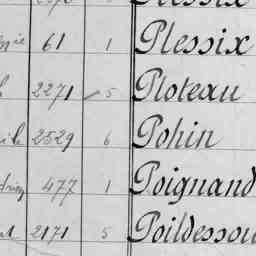 61 1 Plessix
2271 5 Ploteau
2529 6 Pohin
477 1 Poignand
2171 5 Poildessou